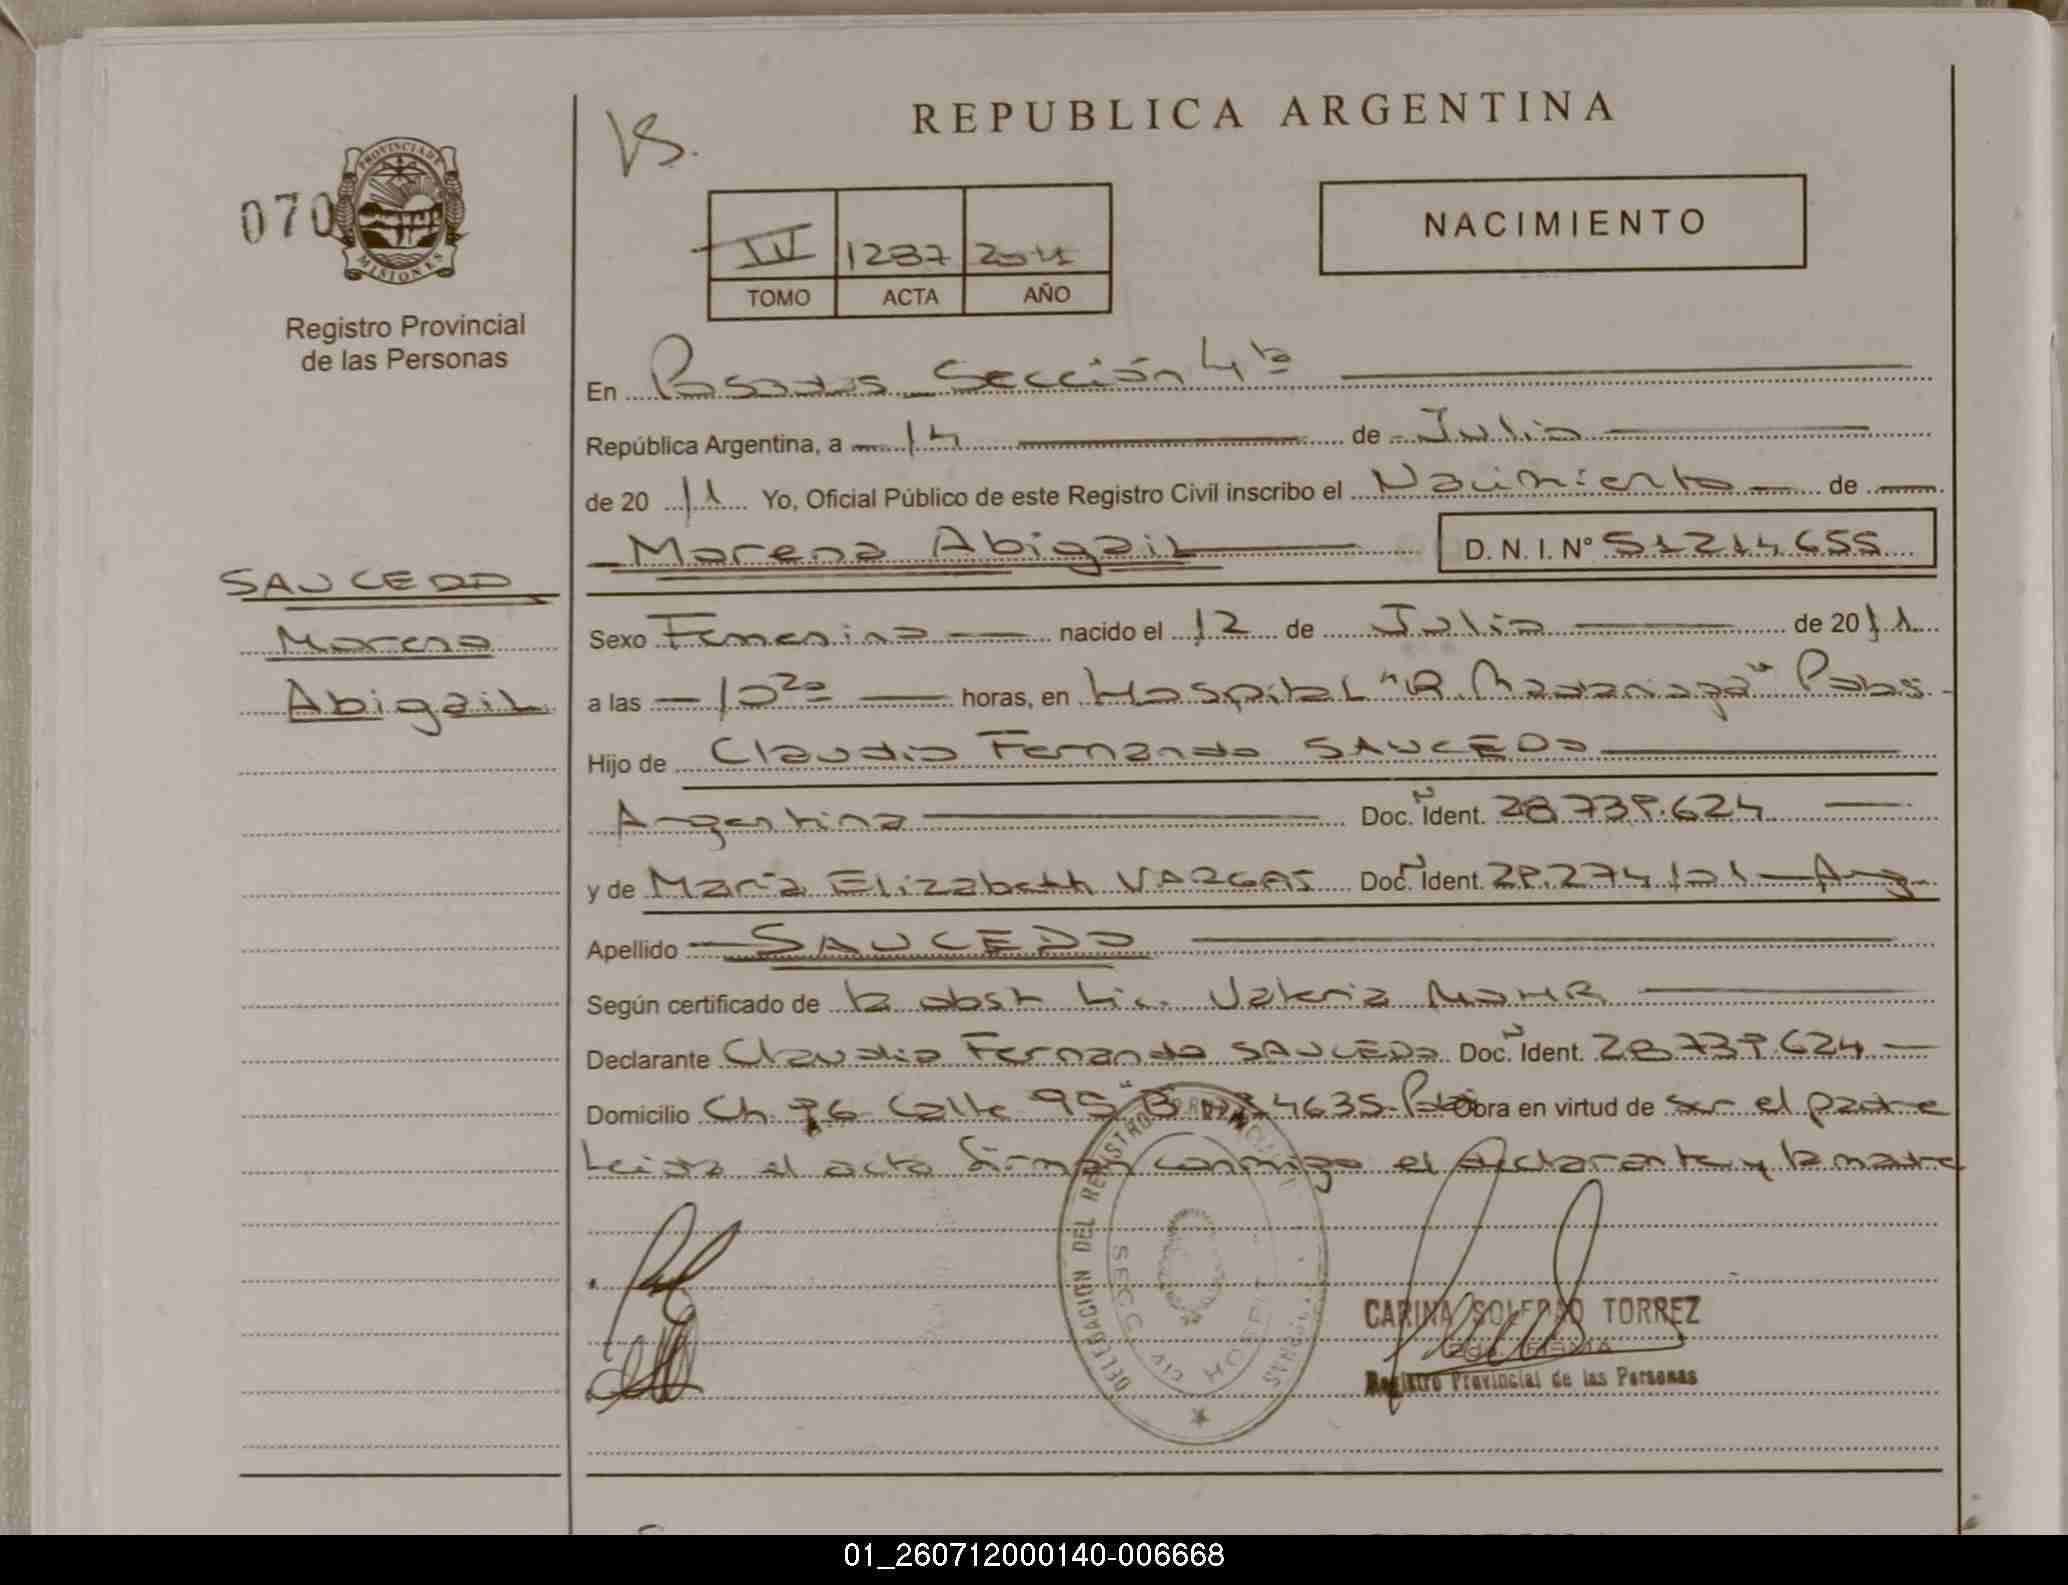 REPUBLICA ARGENTINA
070
PROVINCIA DE
MISIONES
Registro Provincial
de las Personas
IV 1287 2011
TOMO ACTA AÑO
NACIMIENTO
En Posadas Sección 4ta
República Argentina, a 14 de Julio
de 20 11 Yo, Oficial Público de este Registro Civil inscribo el Nacimiento de
Morena Abigail D. N. I. N° 51214655
SAUCEDO
Morena
Abigail
Sexo Femenino nacido el 12 de Julio de 20 11
a las 10 20 horas, en Hospital "R. Madariaga" Pdas.
Hijo de Claudio Fernando SAUCEDO
Argentina Doc. Ident. 28.739.624
y de María Elizabeth VARGAS Doc. Ident. 29.274.101 - Arg.
Apellido SAUCEDO
Según certificado de la obst. Lic. Valeria MOHR
Declarante Claudio Fernando SAUCEDO Doc. Ident. 28.739.624
Domicilio Ch. 96 Calle 95 B 4635 - Obra en virtud de ser el padre
Leída el acta firman conmigo el declarante y la madre
DELEGACION DEL REGISTRO PROVINCIAL
PERSONAS
SECC. 4ta HOSPIT
CARINA SOLEDAD TORREZ
FIRMA
Registro Provincial de las Personas
01_260712000140-006668